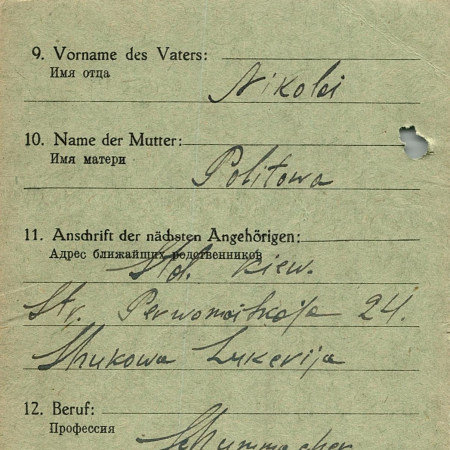 9. Vorname des Vaters:
Имя отца
Nikolai
10. Name der Mutter:
Имя матери
Politowa
11. Anschrift der nächsten Angehörigen:
Адрес ближайших родственников
Std. Kiew.
Str. Perwomaiskaja 24.
Shukowa Lukerija
12. Beruf:
Профессия
Schummacher